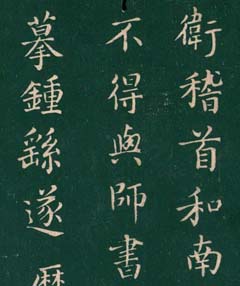 衛稽首和南
不得與師書
摹鍾繇遂歷